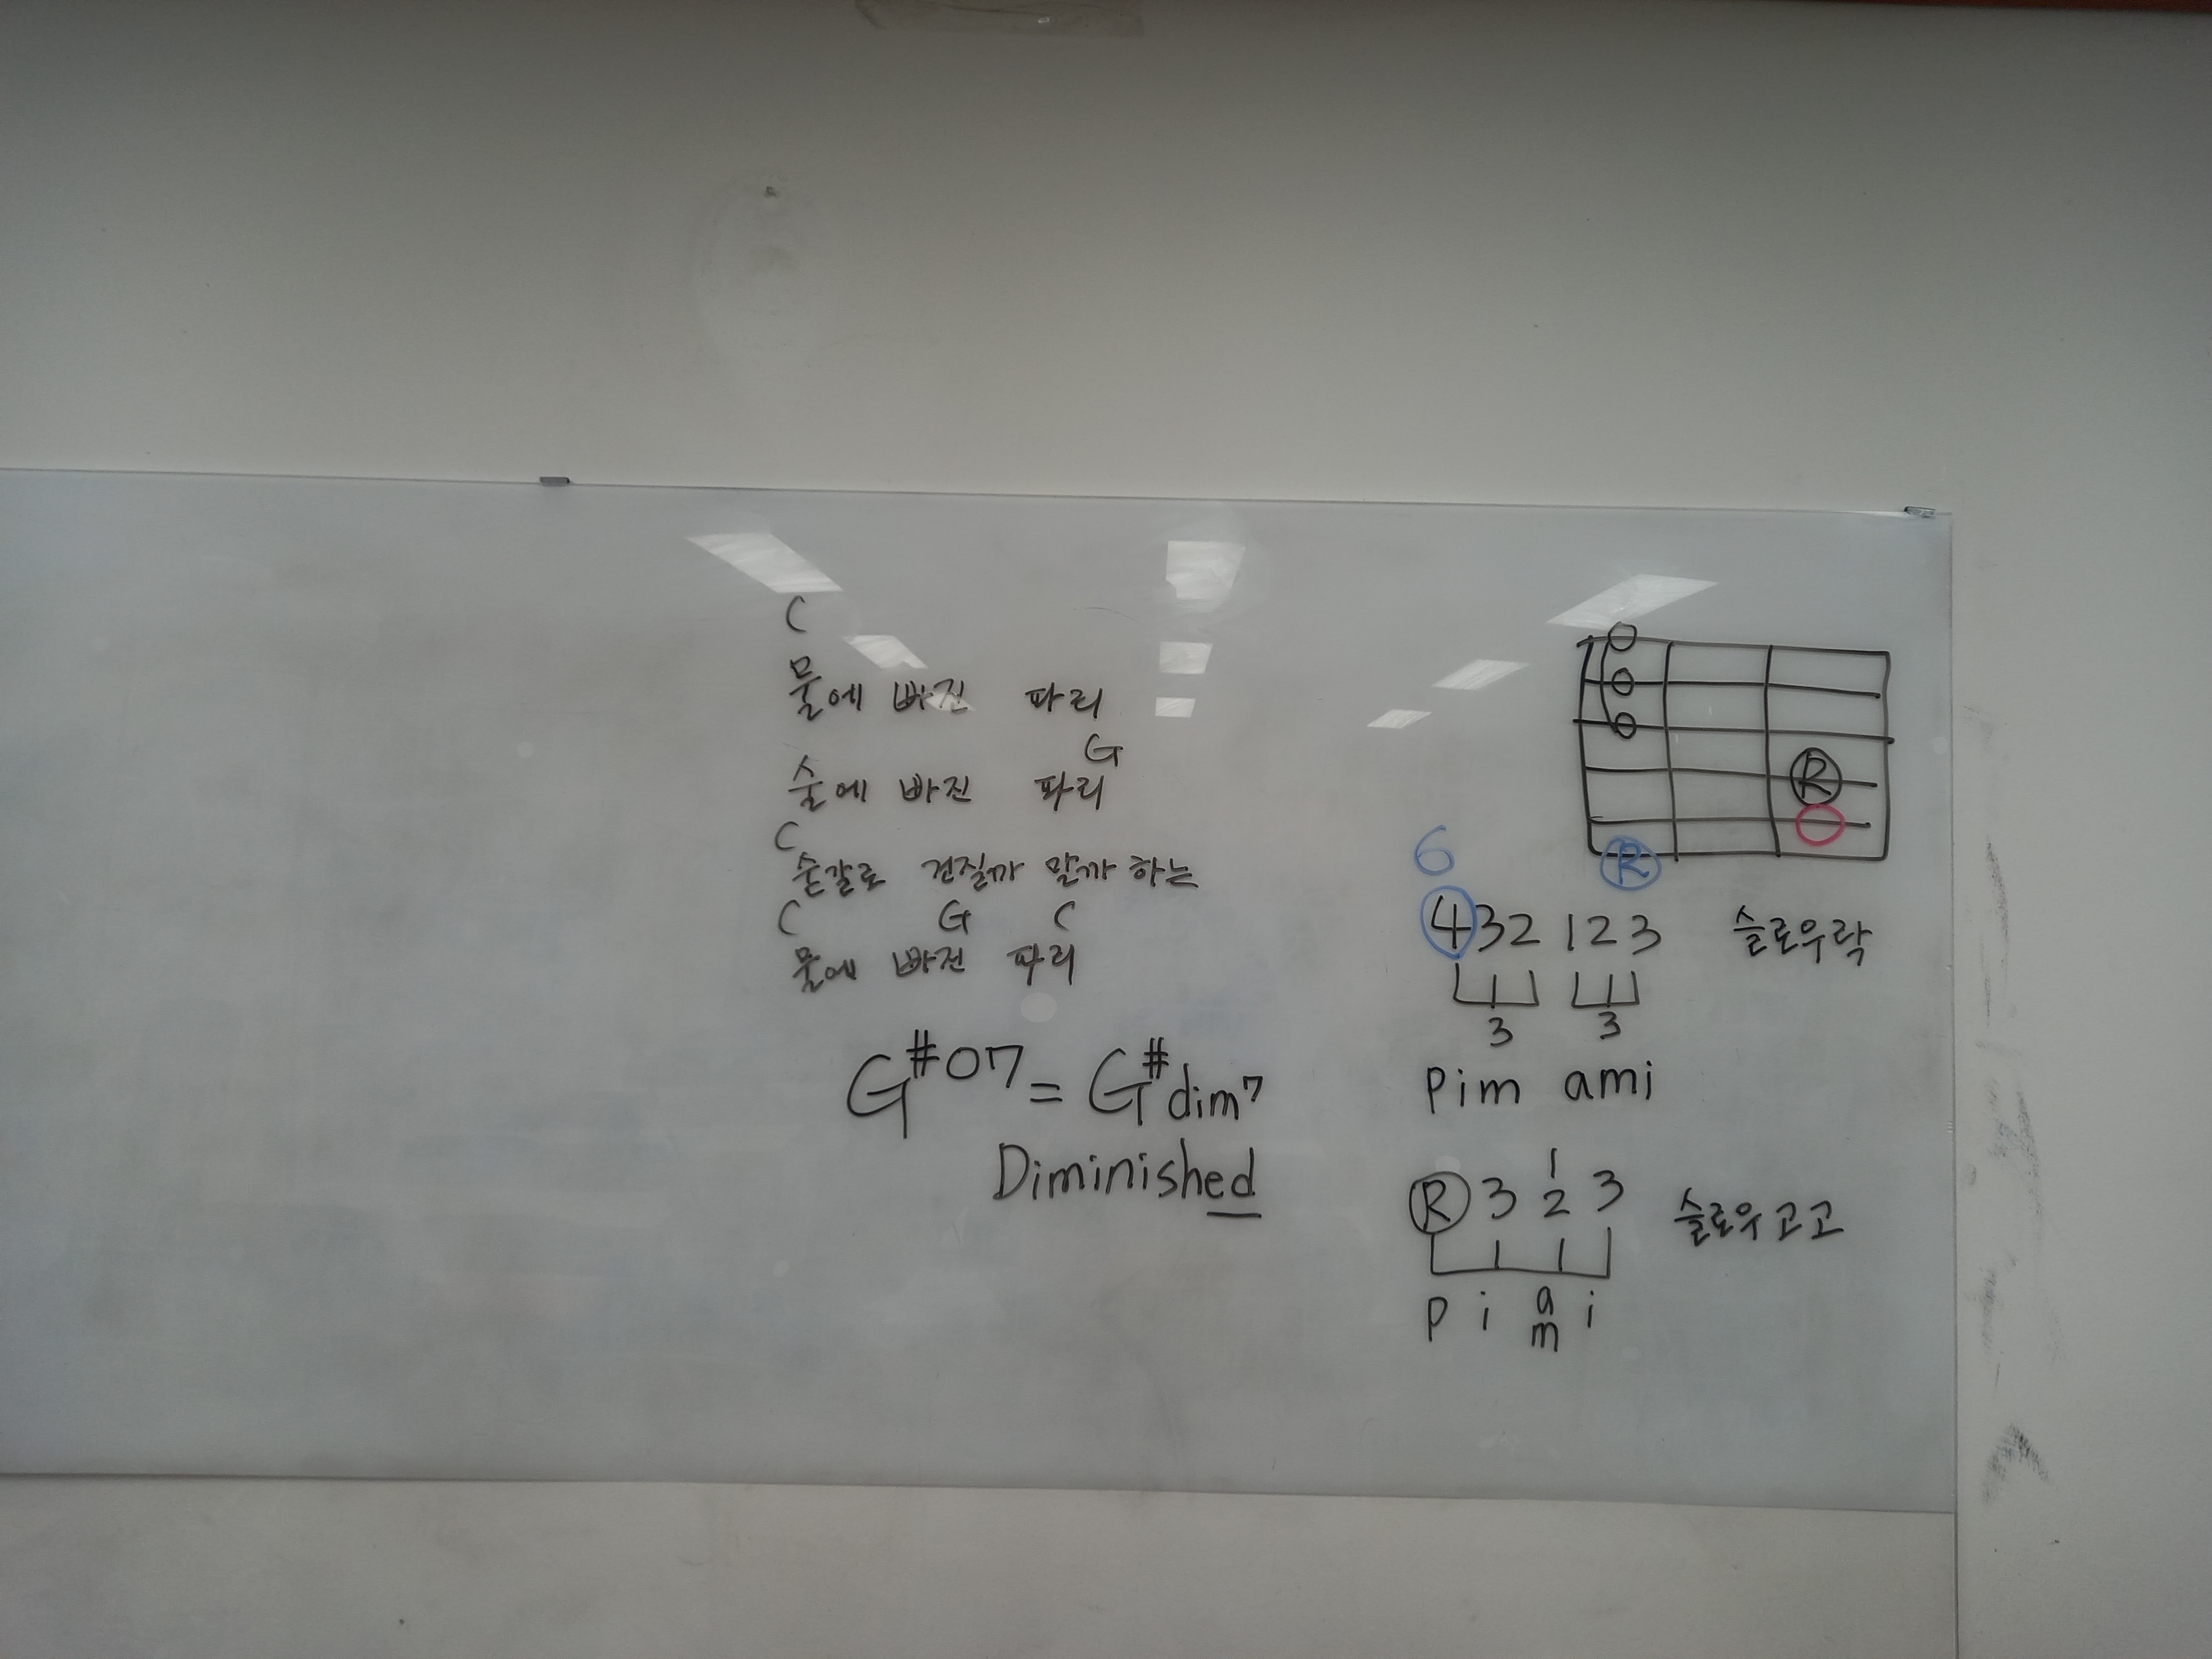 C
물에 빠진 파리
G
술에 빠진 파리
C
숟갈로 건질까 말까 하는
C G C
물에 빠진 파리
G#o7 = G#dim7
Diminished
R
R
6
432 123 슬로우락
3 3
pim ami
1
R 3 2 3 슬로우 고고
a
p i m i